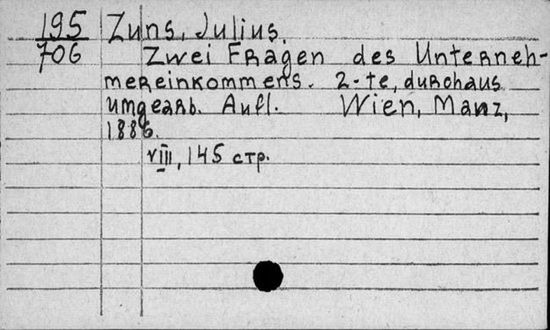 195 Zuns, Julius.
706 Zwei Fragen des Unterneh-
mereinkommens. 2-te, durchaus
umgearb. Aufl. Wien, Manz,
1886.
VIII, 145 стр.